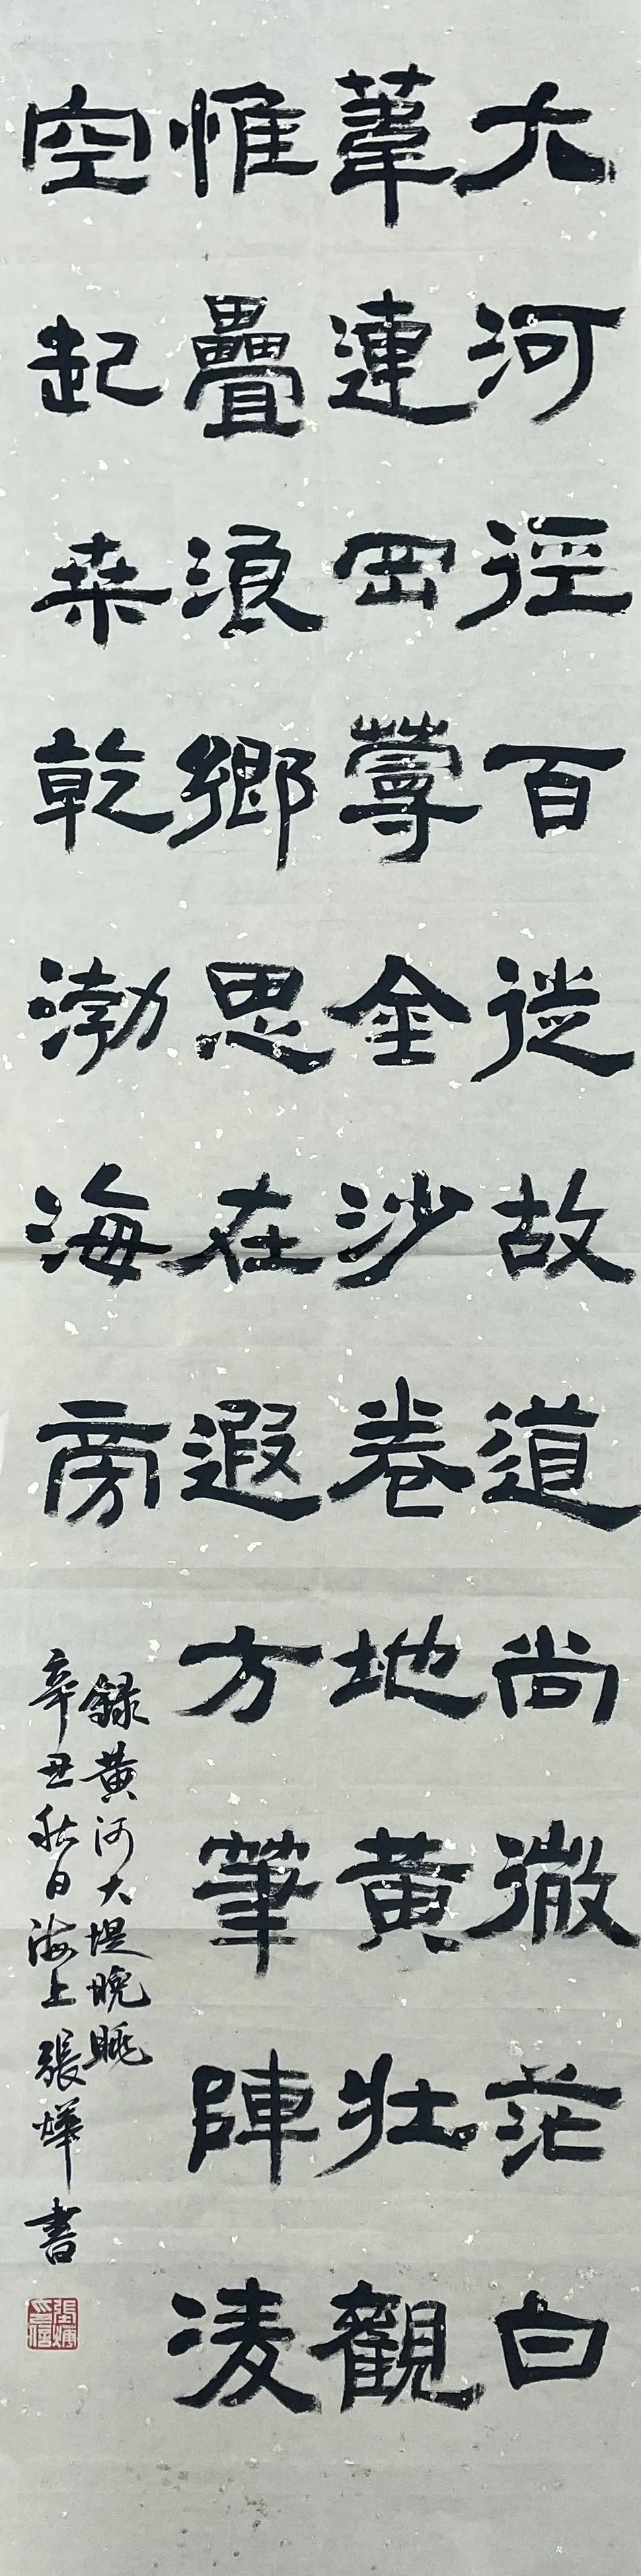 大河徑百徙故道尚澂茫白
葦連岡薴金沙卷地黃壯觀
惟疊浪鄉思在遐方筆陣凌
空起来乾渤海旁
錄黃河大堤晚眺
辛丑秋日海上張燁書